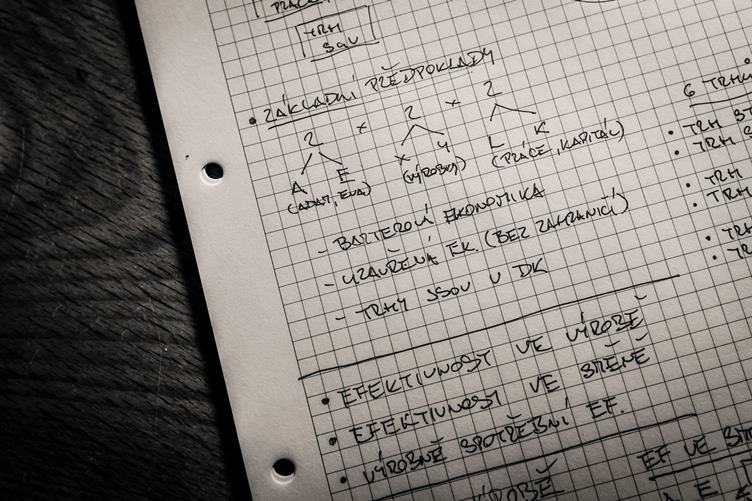 TRH
SaV
• ZÁKLADNÍ PŘEDPOKLADY
2 × 2 × 2
A E X Y L K
(ADAM, EVA) (VÝROBKY) (PRÁCE, KAPITÁL)
- BARTEROVÁ EKONOMIKA
- UZAVŘENÁ EK. (BEZ ZAHRANIČÍ)
- TRHY JSOU V DK
• EFEKTIVNOST VE VÝROBĚ
• EFEKTIVNOST VE SMĚNĚ
• VÝROBNĚ SPOTŘEBNÍ EF.
VÝROBĚ
6 TRHŮ
• TRH
• TRH
• TRH
• TRH
• TRH
• TRH
EF VE